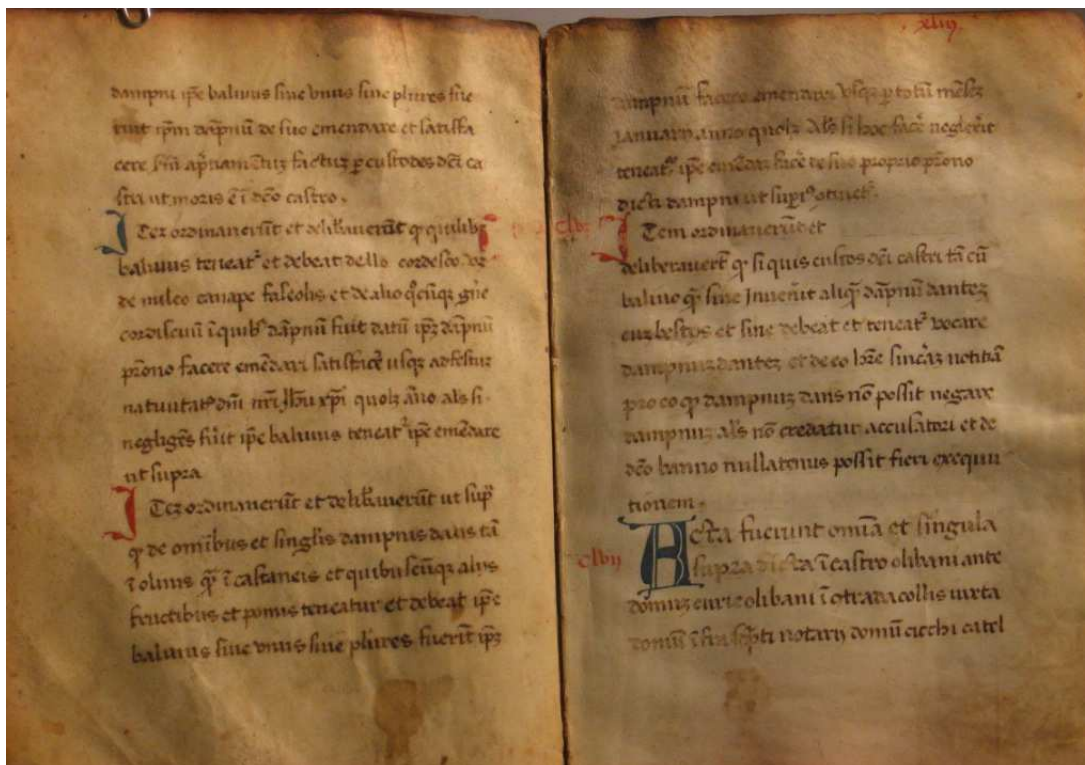 dampni ip̄e balivus sive unus sive plures fue
rint ip̄m dāpnū de suo emendare et satisfa
cere factuʒ per custodes dc̄i ca
stri ut moris ē ī dc̄o castro.
Iteʒ ordinaverūt et deliberaverūt qͥ quilibʒ
balivus teneat᷑ et debeat dello
de milco canape faseolis et de alio gn̄e
ī quibꝰ dāpnū fuit datū ip̄ʒ dāpnū
p̄ono facere emēdari usqʒ ad festuʒ
nativitatꝭ dn̄i nr̄i yhū xp̄i quolʒ āno als̄ si
negligēs fūit ip̄e balivus teneat᷑ ip̄e emēdare
ut supra
Iteʒ ordinaverūt et deliberaverūt ut supᵃ
qͥ de omībus et singlis dampnis datis tā
ī olivis qᵃ ī castaneis et quibuscūqʒ aliis
fructibus et pomis teneatur et debeat ip̄e
balivus sive unus sive plures fuerīt ip̄ʒ
xliiij
dampnū facere emendari usqʒ ꝑ totū mēseʒ
januarii anno quolʒ als̄ si hoc facē neglexīt
teneat᷑ ip̄e emēdar facē de suo proprio p̄ono
dicti dampni ut supᵃ ↄtinet᷑.
clvj
Item ordinaverūt et
deliberaverūt qͥ si quis custos dc̄i castri tā cū
balivo qᵃ sine invenīt aliqͥ dāpnū danteʒ
cuʒ bestiis et sine debeat et teneat᷑ vocare
dampnuʒ danteʒ et de eo hr̄e sincāʒ notitiā
pro eo qͥ dampnuʒ dans nō possit negare
dampnuʒ als̄ nō credatur accusatori et de
dc̄o banno nullatenus possit fieri exequu
tionem.
clvij
Acta fuerunt omīa et singula
supra dicta ī castro olibani ante
domuʒ curie olibani ī ↄtrada collis iuxta
domū īfrascͥpti notarii domū cicchi catel